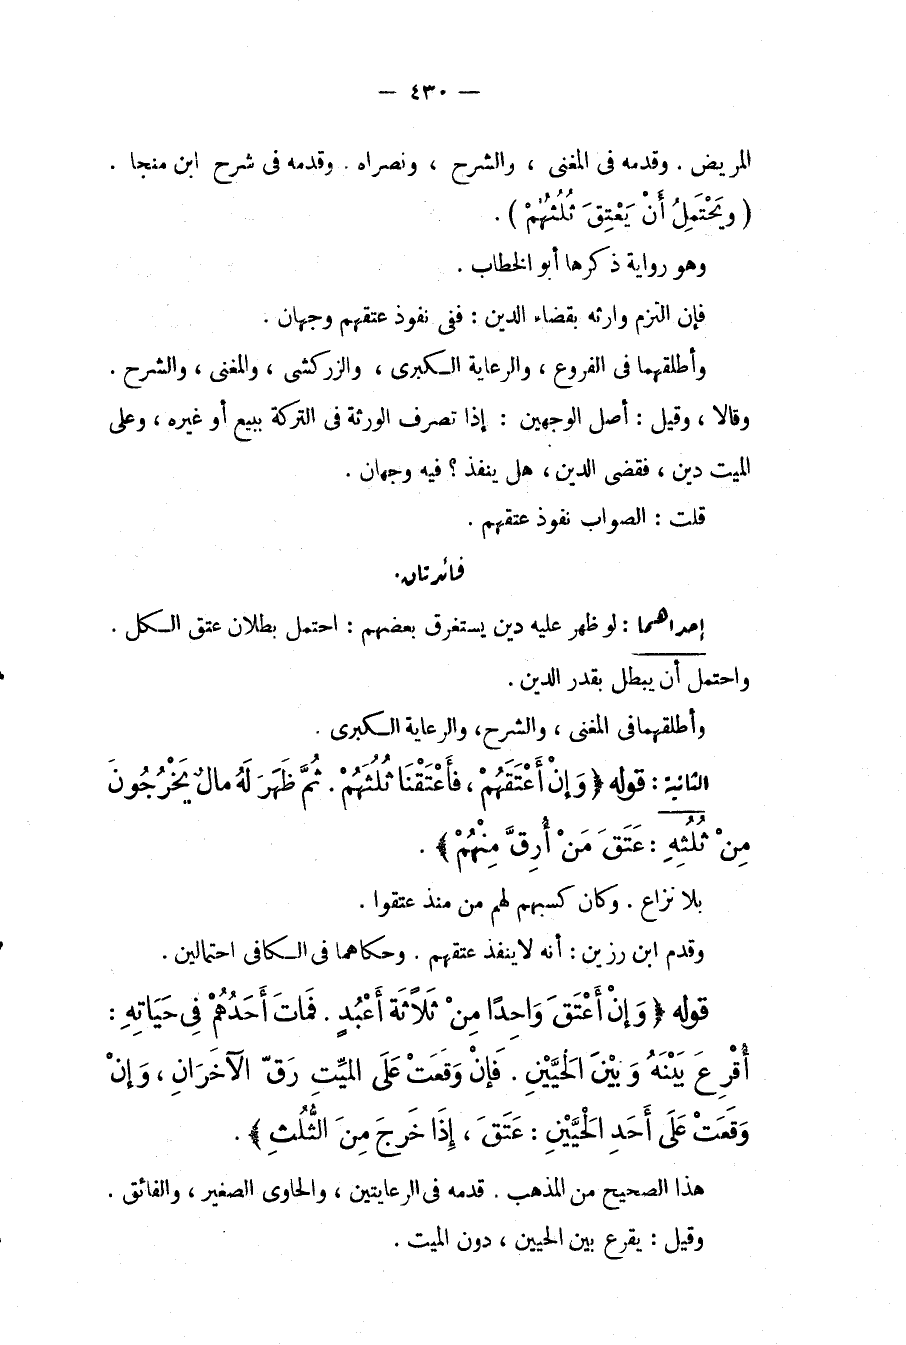 — ٤٣٠ —
المريض . وقدمه فى المغنى ، والشرح ، ونصراه . وقدمه فى شرح ابن منجا .
( ويَحْتَمِلُ أَنْ يَعْتِقَ ثُلُثُهُمْ ) .
وهو رواية ذكرها أبو الخطاب .
فإن التزم وارثه بقضاء الدين : ففى نفوذ عتقهم وجهان .
وأطلقهما فى الفروع ، والرعاية الكبرى ، والزركشى ، والمغنى ، والشرح .
وقالا ، وقيل : أصل الوجهين : إذا تصرف الورثة فى التركة ببيع أو غيره ، وعلى
الميت دين ، فقضى الدين ، هل ينفذ ؟ فيه وجهان .
قلت : الصواب نفوذ عتقهم .
فائدتان.
إحداهما : لو ظهر عليه دين يستغرق بعضهم : احتمل بطلان عتق الكل .
واحتمل أن يبطل بقدر الدين .
وأطلقهمافى المغنى ، والشرح، والرعاية الكبرى .
الثانية : قوله ﴿ وَإِنْ أَعْتَقَهُمْ ، فَأَعْتَقْنَا ثُلُثَهُمْ . ثُمَّ ظَهَرَ لَهُ مالٌ يَخْرُجُونَ
مِنْ ثُلُثِهِ : عَتَقَ مَنْ أُرِقَّ مِنْهُمْ ﴾ .
بلا نزاع . وكان كسبهم لهم من منذ عتقوا .
وقدم ابن رزين : أنه لاينفذ عتقهم . وحكاهما فى الكافى احتمالين .
قوله ﴿ وَإِنْ أَعْتَقَ وَاحِدًا مِنْ ثَلاَثَة أَعْبُدٍ . فَمَاتَ أَحَدُهُمْ فِى حَيَاتِهِ :
أُقْرِعَ بَيْنَهُ وَبَيْنَ الْحَيَّيْنِ . فَإِنْ وَقَعَتْ عَلَى الميِّتِ رَقّ الآخَرَانِ ، وَإِنْ
وَقَعَتْ عَلَى أَحَدِ الْحَيَّيْنِ : عَتَقَ ، إِذَا خَرَجَ مِنَ الثُّلُثِ ﴾ .
هذا الصحيح من المذهب . قدمه فى الرعايتين ، والحاوى الصغير ، والفائق .
وقيل : يقرع بين الحيين ، دون الميت .